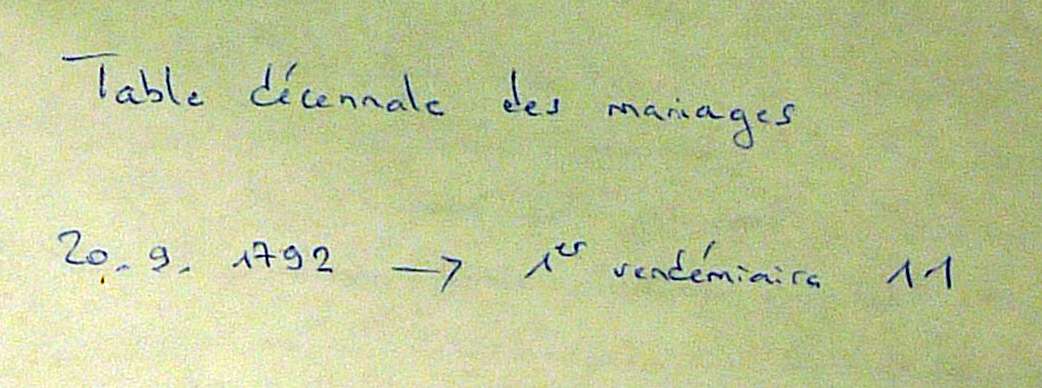 Table décennale des mariages
20.9.1792 → 1er vendémiaire 11